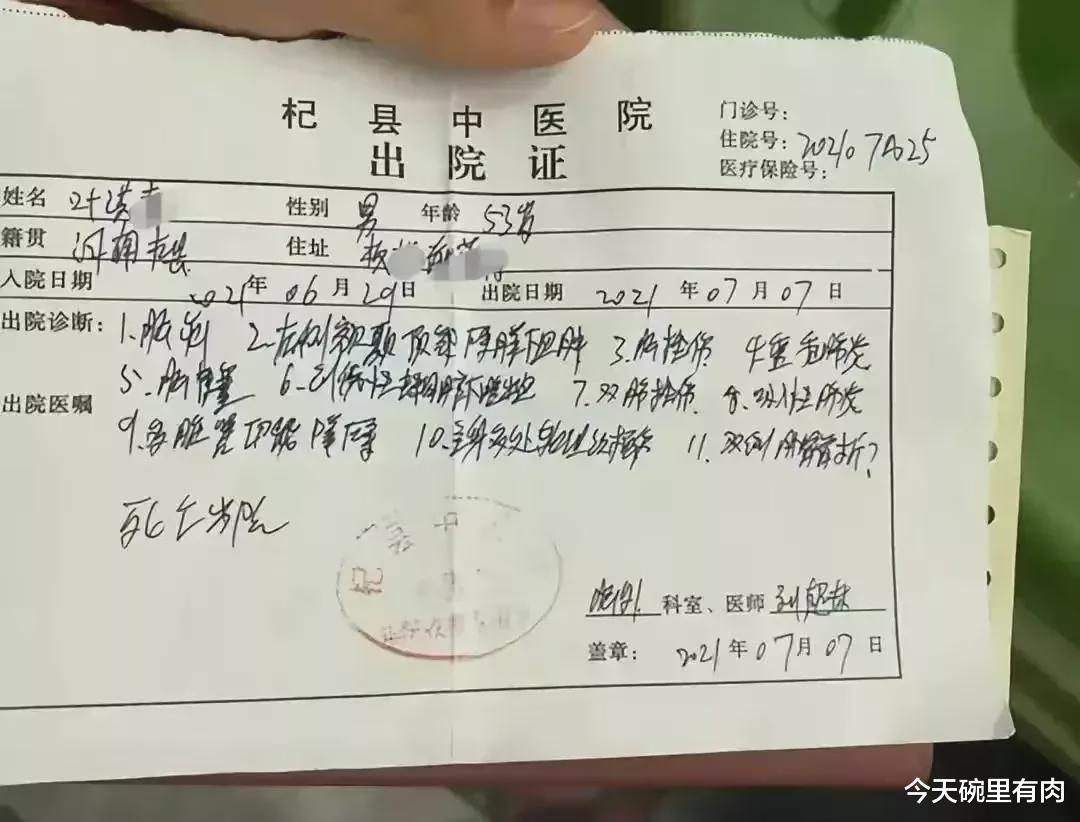 杞县中医院
出院证
门诊号:
住院号: 202107A025
医疗保险号:
姓名 叶洪 性别 男 年龄 53岁
籍贯 河南杞县 住址
入院日期 2021年06月29日 出院日期 2021年07月07日
出院诊断: 1.脑疝 2.左侧额颞顶部硬膜下血肿 3.脑挫伤 4.重症肺炎
出院医嘱 5.脑 6.创伤性蛛网膜下腔出血 7.双肺挫伤 8.坠积性肺炎
9.多脏器功能障碍 10.全身多处软组织损伤 11.双侧肋骨骨折?
死亡出院
科室、医师
盖章: 2021年07月07日
今天碗里有肉